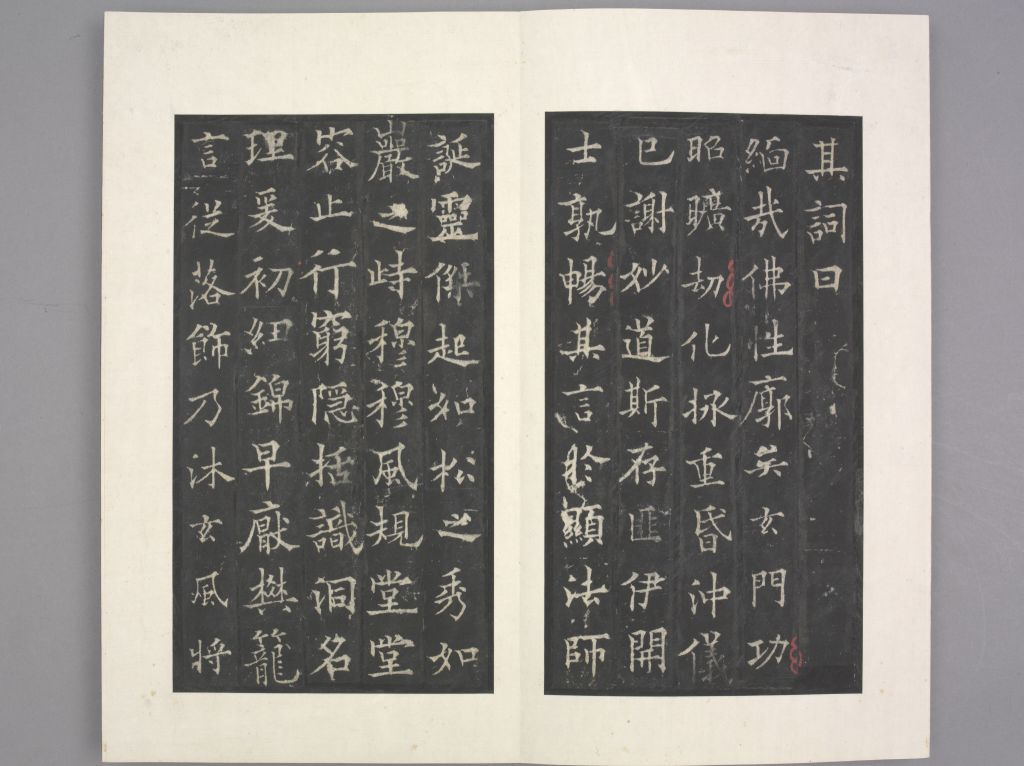 其詞曰
緬哉佛性廓矣玄門功
昭曠劫化拯重昏沖儀
已謝妙道斯存匪伊開
士孰暢其言於顯法師
誕靈傑起如松之秀如
巖之峙穆穆風規堂堂
容止行窮隱括識洞名
理爰初紐錦早厭樊籠
言從落飾乃沐玄風將